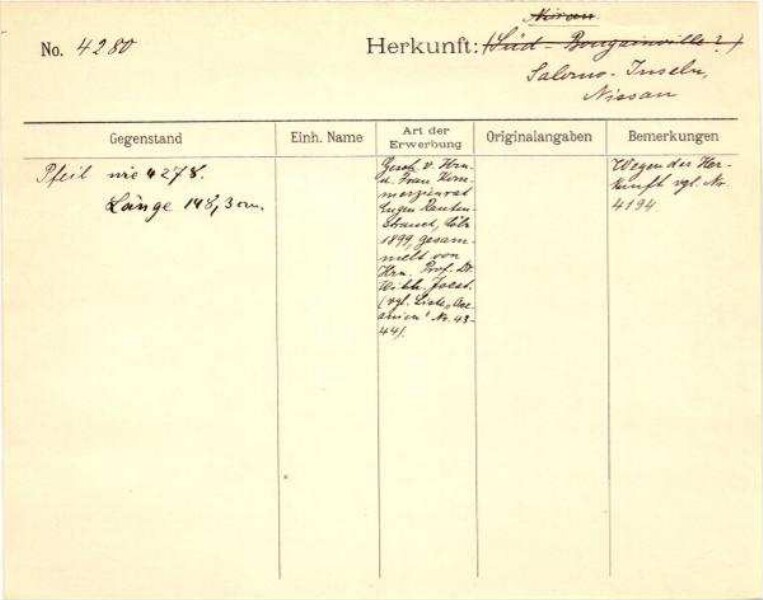 No. 4280
Herkunft: (Süd-Bougainville?)
Salomo-Inseln,
Nissan
Gegenstand
Einh. Name
Art der
Erwerbung
Originalangaben
Bemerkungen
Pfeil wie 4278.
Länge 148,3 cm.
Gesch. v. Hrn.
u. Frau Kom-
merzienrat
Eugen Rauten-
strauch, Cöln
1899, gesam-
melt von
Hrn. Prof. Dr.
Wilh. Joest.
(vgl. Liste „Oce-
anien" Nr. 43-
44).
Wegen der Her-
kunft vgl. Nr.
4194.